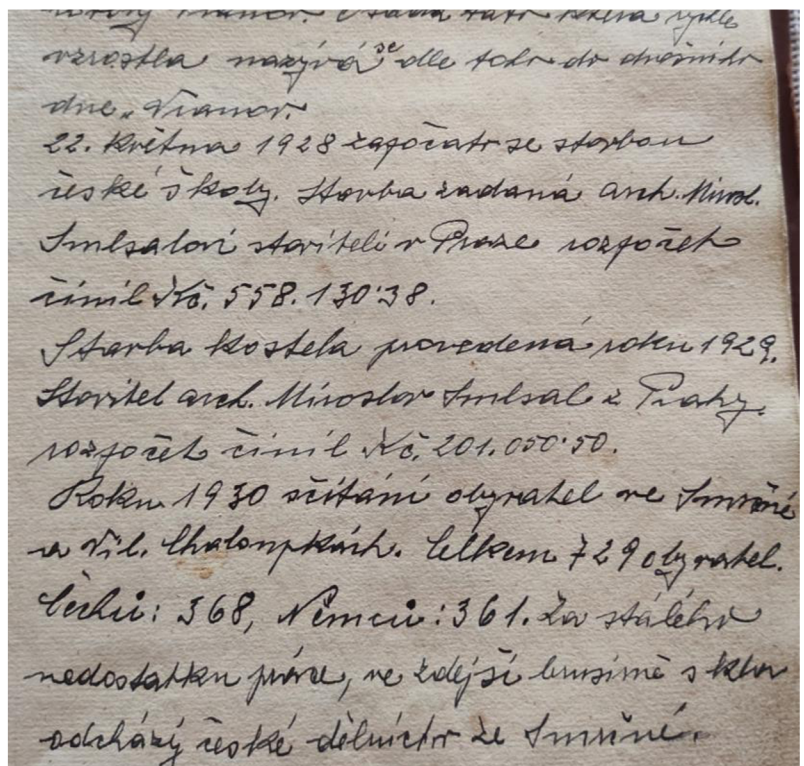 Vianov. Osada tato která rychle
vzrostla nazývá se dle toho do dnešního
dne „Vianov.
22. května 1928 započato se stavbou
české školy. Stavba zadaná arch. Mirosl.
Smlsalovi staviteli v Praze rozpočet
činil Kč. 558.130·38.
Stavba kostela provedená roku 1929.
Stavitel arch. Miroslav Smlsal z Prahy,
rozpočet činil Kč. 201.050·50.
Roku 1930 sčítání obyvatel ve Smržné
a Vil. Chaloupkách. Celkem 729 obyvatel.
Čechů: 368, Němců: 361. Za stálého
nedostatku práce, ve zdejší brusírně skla
odchází české dělnictvo ze Smržné.